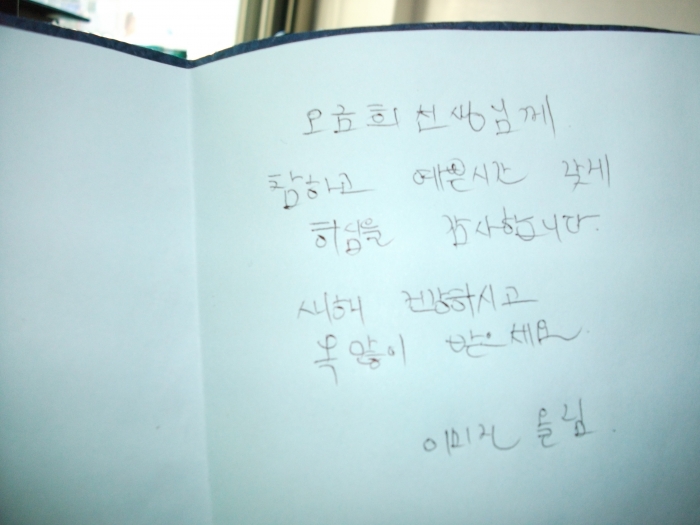 오금희 선생님께
참하고 예쁜시간 갖게
하심을 감사합니다.
새해 건강하시고
복 많이 받으세요.
이미진 올림.